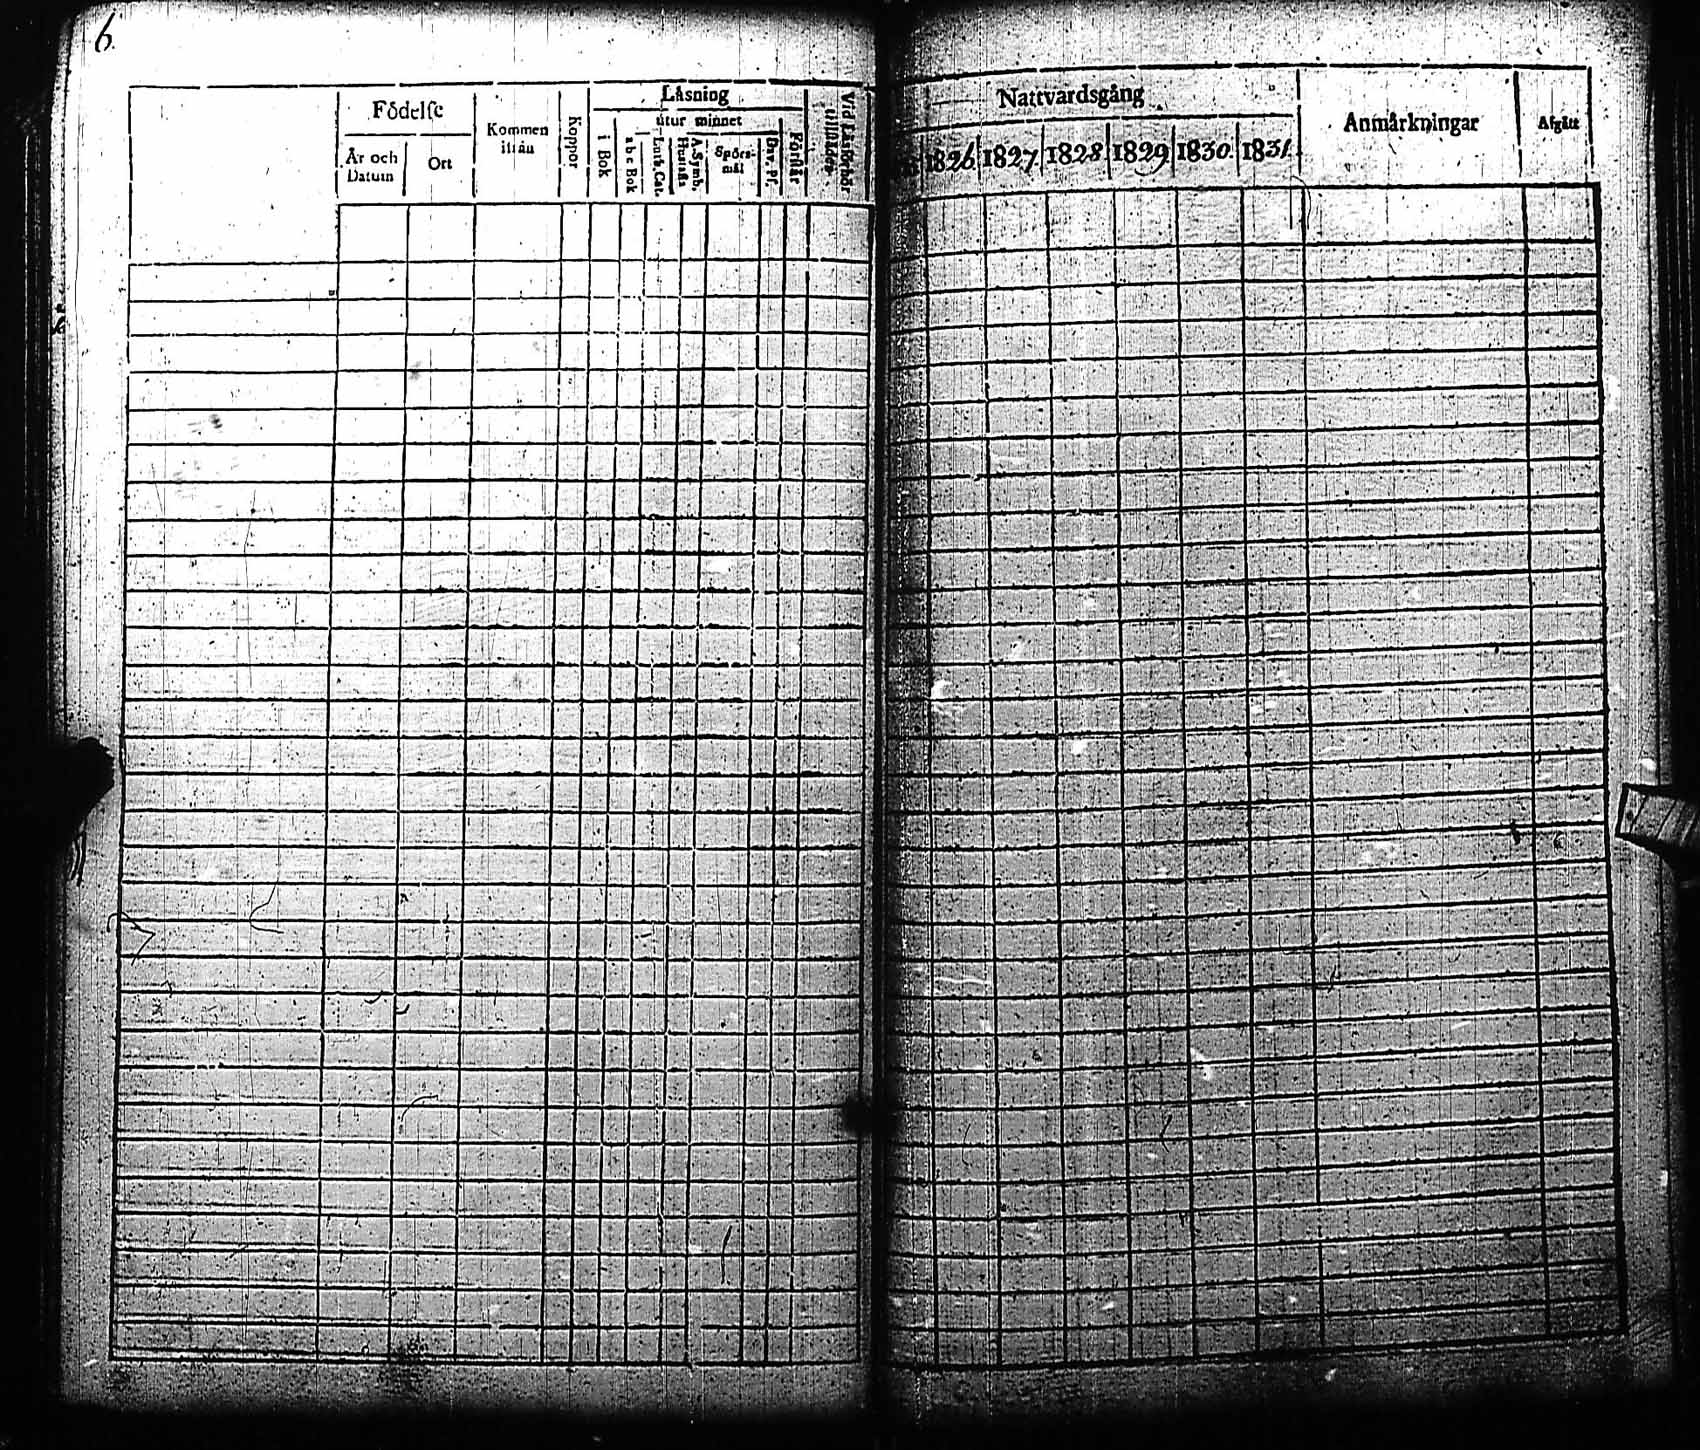 6.
Födelse
År och Datum
Ort
Kommen ifrån
Koppor
Läsning
utur minnet
i Bok
a b c Bok
Luth. Cat.
A. Symb. Hustafl.
Spörs-
mål
Dav. Ps.
Förstår
Vid Läsförhör tillstädes.
Nattvardsgång
1826
1827
1828
1829
1830
1831
Anmärkningar
Afgått